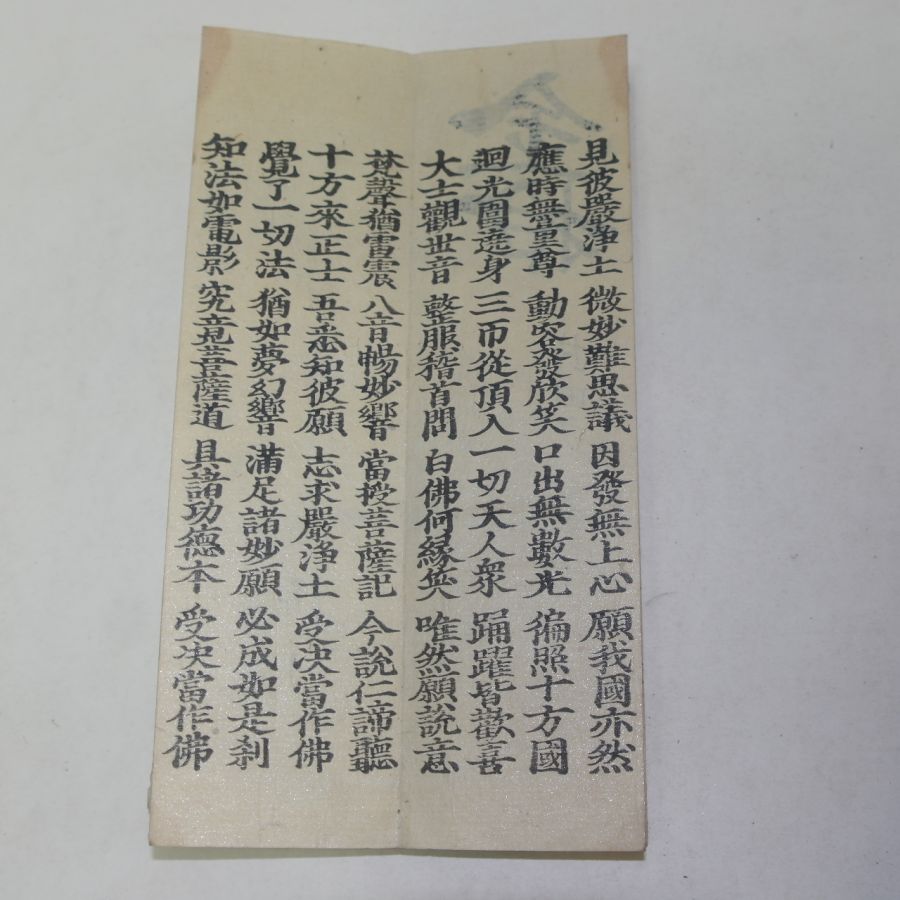 見彼嚴淨土 微妙難思議 因發無上心 願我國亦然
應時無量尊 動容發欣笑 口出無數光 徧照十方國
迴光圍遶身 三帀從頂入 一切天人衆 踊躍皆歡喜
大士觀世音 整服稽首問 白佛何緣笑 唯然願說意
梵聲猶雷震 八音暢妙響 當授菩薩記 今說仁諦聽
十方來正士 吾悉知彼願 志求嚴淨土 受决當作佛
覺了一切法 猶如夢幻響 滿足諸妙願 必成如是刹
知法如電影 究竟菩薩道 具諸功德本 受决當作佛